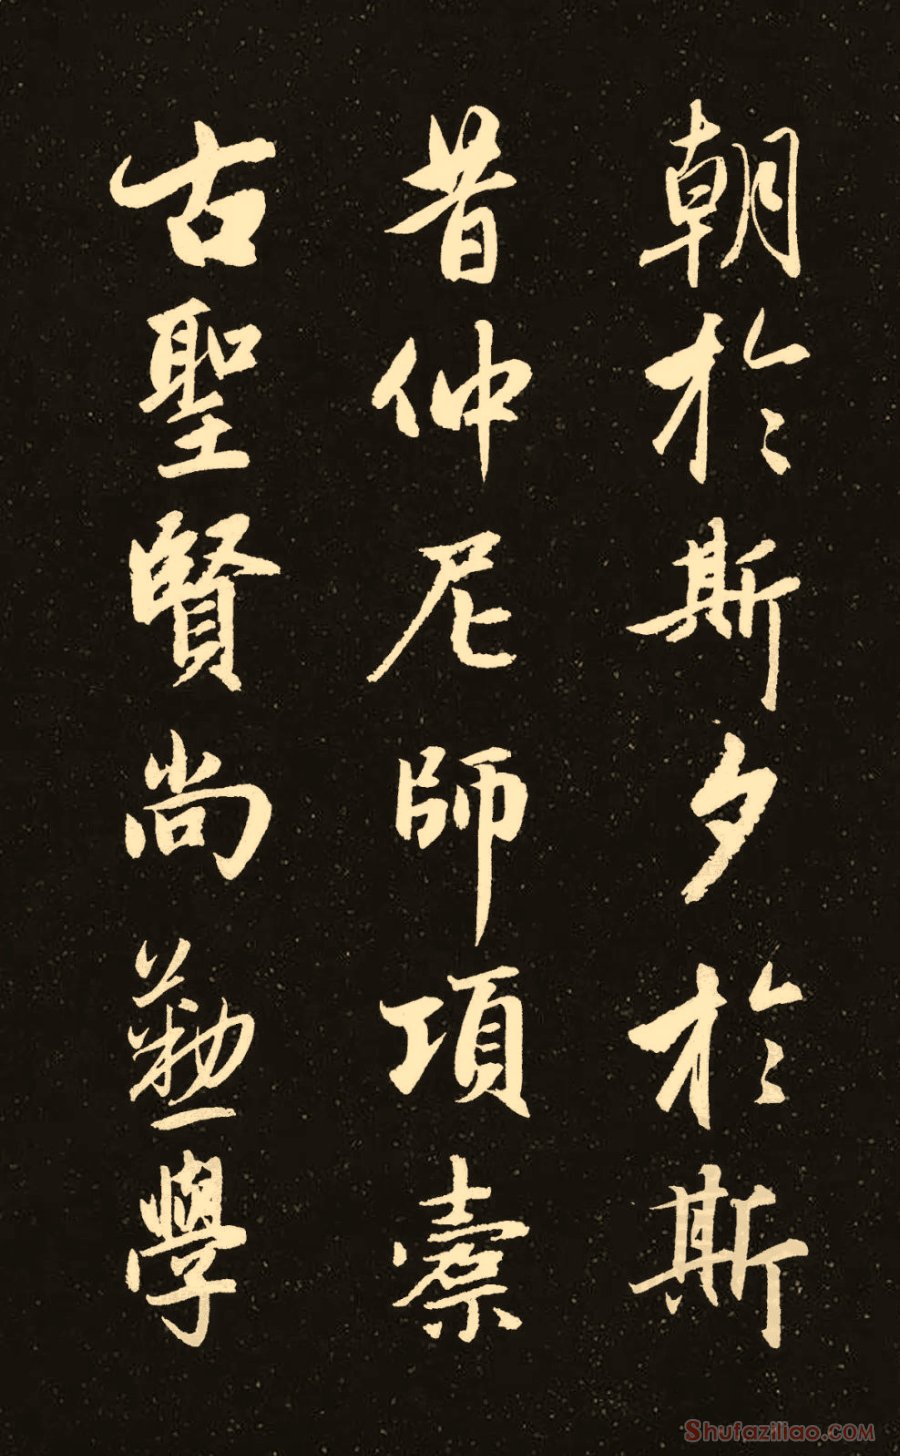 朝於斯夕於斯
昔仲尼師項橐
古聖賢尚勤學
Shufaziliao.COM